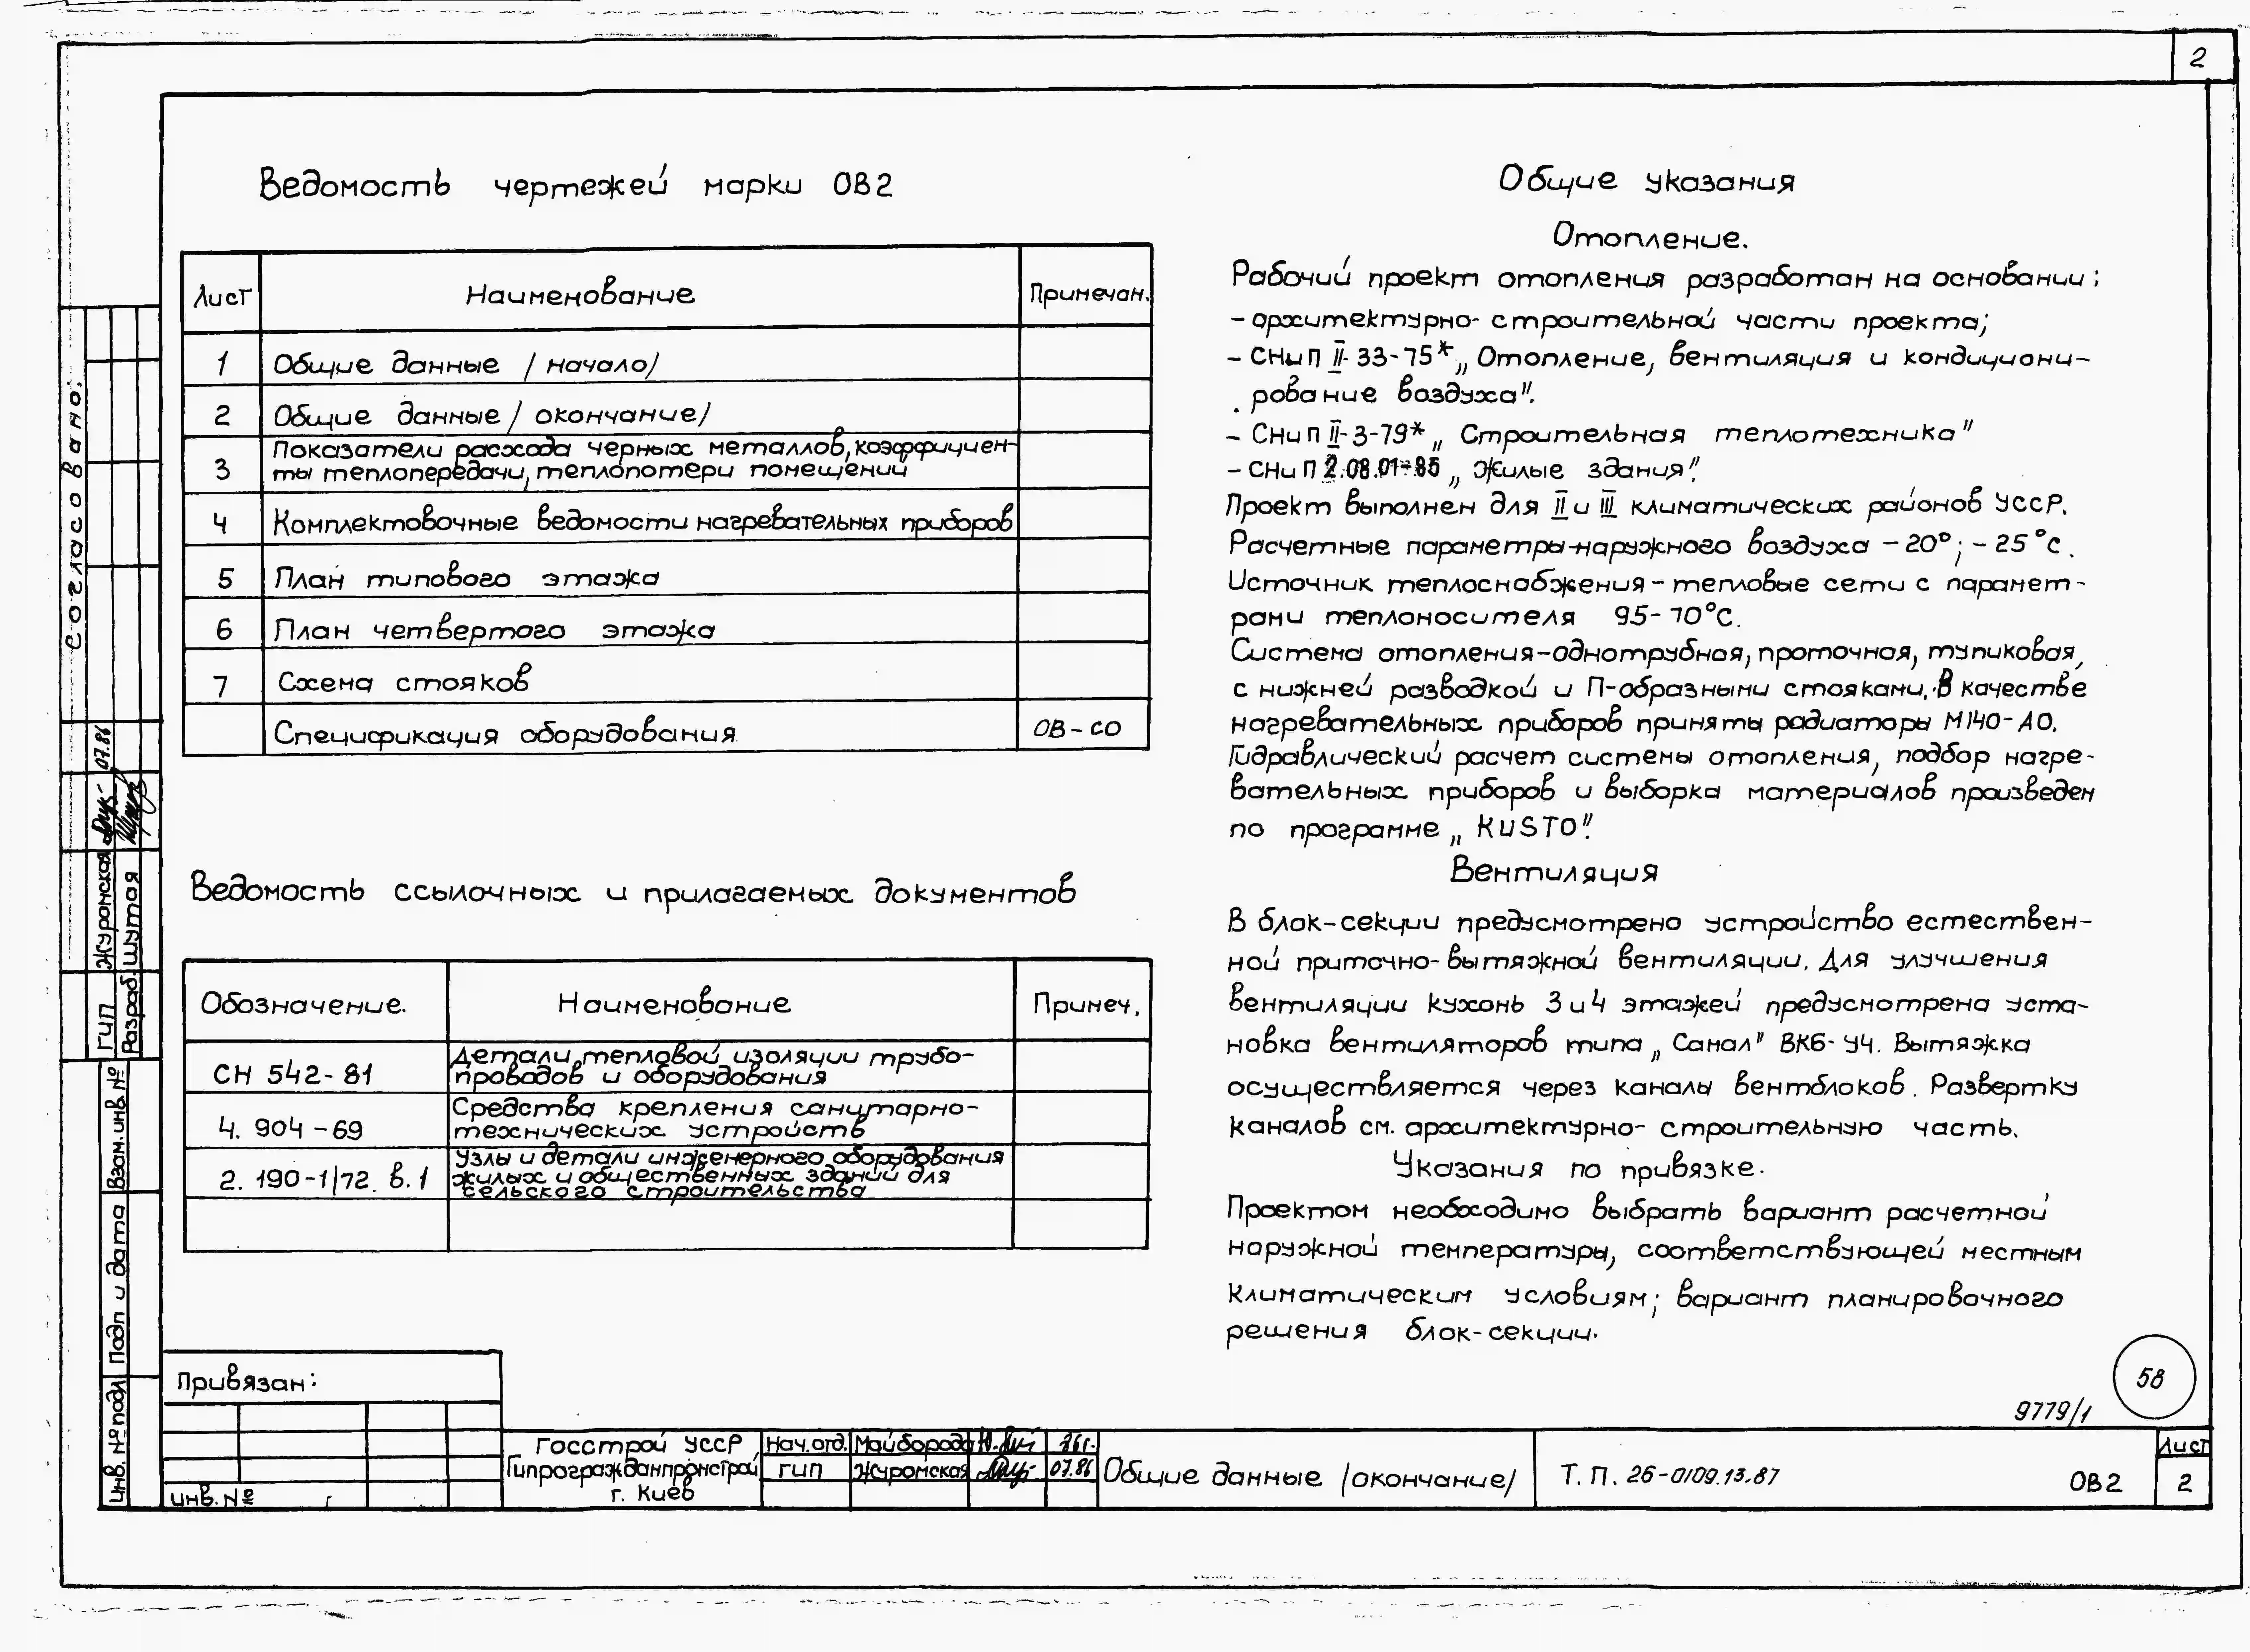 2
Ведомость чертежей марки ОВ2
Лист Наименование Примечан.
1 Общие данные /начало/
2 Общие данные /окончание/
3 Показатели расхода черных металлов, коэффициен-
ты теплопередачи, теплопотери помещений
4 Комплектовочные ведомости нагревательных приборов
5 План типового этажа
6 План четвертого этажа
7 Схема стояков
Спецификация оборудования ОВ-СО
Ведомость ссылочных и прилагаемых документов
Обозначение. Наименование Примеч.
СН 542-81 Детали тепловой изоляции трубо-
проводов и оборудования
4.904-69 Средства крепления санитарно-
технических устройств
2.190-1/72. в.1 Узлы и детали инженерного оборудования
жилых и общественных зданий для
сельского строительства
Общие указания
Отопление.
Рабочий проект отопления разработан на основании:
- архитектурно-строительной части проекта;
- СНиП II-33-75* „Отопление, вентиляция и кондициони-
рование воздуха".
- СНиП II-3-79* „Строительная теплотехника"
- СНиП 2.08.01-85 „Жилые здания".
Проект выполнен для II и III климатических районов УССР.
Расчетные параметры наружного воздуха -20°; -25°С.
Источник теплоснабжения - тепловые сети с парамет-
рами теплоносителя 95-70°С.
Система отопления-однотрубная, проточная, тупиковая,
с нижней разводкой и П-образными стояками. В качестве
нагревательных приборов приняты радиаторы М140-АО.
Гидравлический расчет системы отопления, подбор нагре-
вательных приборов и выборка материалов произведен
по программе „KUSTO".
Вентиляция
В блок-секции предусмотрено устройство естествен-
ной приточно-вытяжной вентиляции. Для улучшения
вентиляции кухонь 3 и 4 этажей предусмотрена уста-
новка вентиляторов типа „Санал" ВК6-У4. Вытяжка
осуществляется через каналы вентблоков. Развертку
каналов см. архитектурно-строительную часть.
Указания по привязке.
Проектом необходимо выбрать вариант расчетной
наружной температуры, соответствующей местным
климатическим условиям; вариант планировочного
решения блок-секции.
58
9779/1
Согласовано:
ГИП Журомская 07.86
Разраб. Шутая
Взам. инв. №
Подп и дата
Инв. № подл
Привязан:
Инв. №
Госстрой УССР
Гипрогражданпромстрой
г. Киев
Нач. отд. Майборода
ГИП Журомская 07.86
Общие данные /окончание/
Т.П. 26-0109.13.87 ОВ2
Лист
2